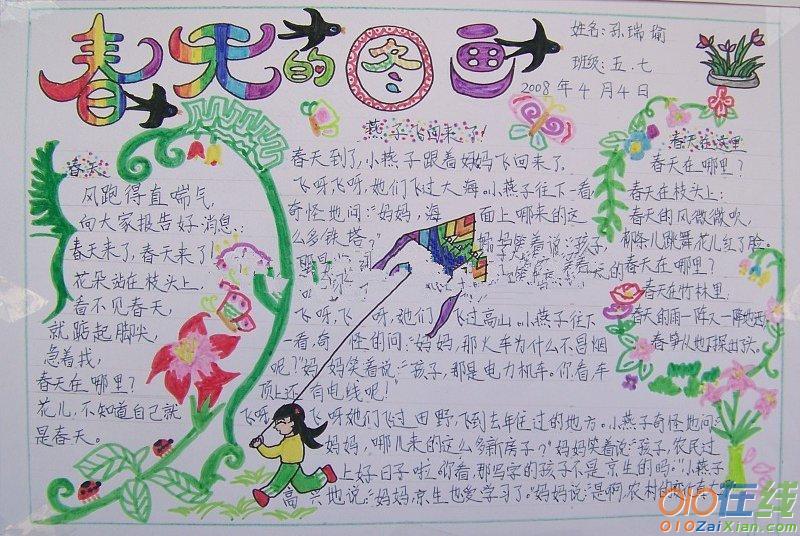 春天的图画
姓名:孙瑞瑜
班级:五.七
2008年4月4日
春天
风跑得直喘气,
向大家报告好消息:
春天来了,春天来了!
花朵站在枝头上,
看不见春天,
就踮起脚尖,
急着找,
春天在哪里?
花儿,不知道自己就
是春天。
燕子飞回来了!
春天到了,小燕子跟着妈妈飞回来了。
飞呀,飞呀,她们飞过大海。小燕子往下一看,
奇怪地问:“妈妈,海面上哪来的这
么多铁塔?”妈妈笑着说:“孩子,
飞呀,飞呀,她们飞过高山。小燕子往下
一看,奇怪的问:“妈妈,那火车为什么不冒烟
呢?”妈妈笑着说:“孩子,那是电力机车。你看车
顶上还有电线呢!
飞呀,飞呀她们飞过田野,飞到去年住过的地方。小燕子奇怪地问:“
妈妈,哪儿来的这么多新房子?”妈妈笑着说:“孩子,农民过
上好日子啦。你看,那写字的孩子不是京生的吗。”小燕子
高兴地说:“妈妈,京生也爱学习了。”妈妈说:“是啊,农村的变化
春天在哪里
春天在哪里?
春天在枝头上:
春天的风微微吹,
柳条儿跳舞花儿红了脸。
春天在哪里?
春天在竹林里:
春天的雨一阵又一阵地洒
春笋从地下探出头。
010在线
010ZaiXian.com